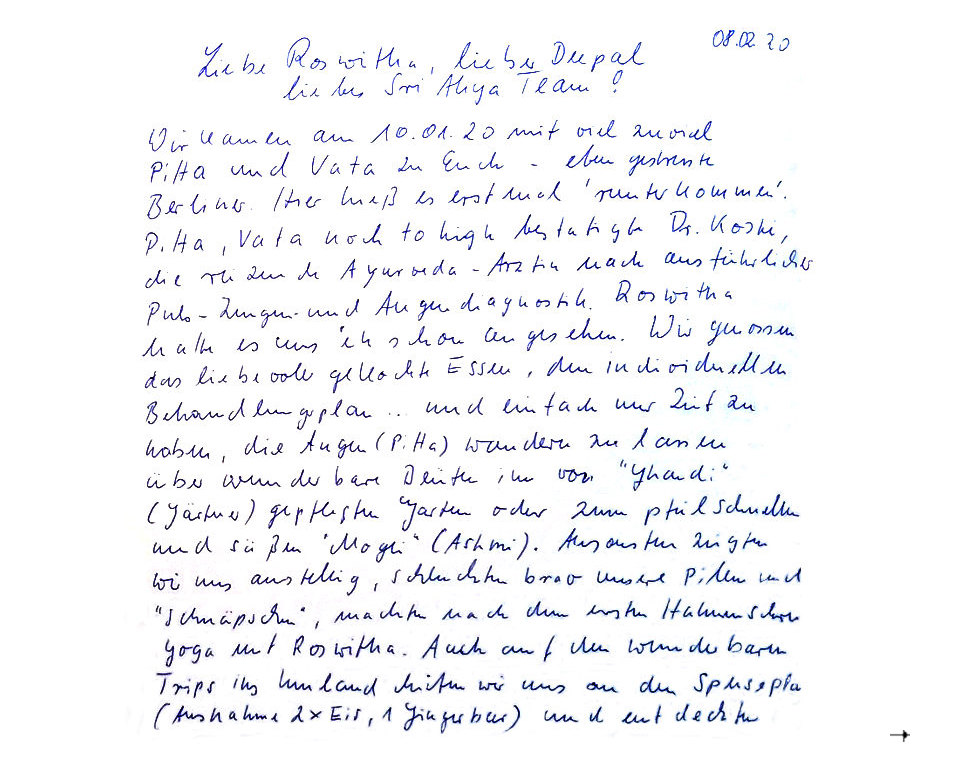 08.02.20
Liebe Roswitha, lieber Deepal
liebes Sri Aliya Team!
Wir kamen am 10.01.20 mit viel zuviel
Pitta und Vata zu Euch - eben gestresste
Berliner. Hier hieß es erst mal 'runterkommen'.
Pitta, Vata noch to high bestätigte Dr.
die reizende Ayurveda-Ärztin nach ausführlicher
Puls-Zungen-und Augendiagnostik. Roswitha
hatte es uns eh schon angesehen. Wir genossen
das liebevoll gekochte Essen, den individuellen
Behandlungsplan .. und einfach nur Zeit zu
haben, die Augen (Pitta) wandern zu lassen
über wunderbare Blüten im von "Ghandi"
(Gärtner) gepflegten Garten oder zum pfeilschnellen
und süßen "Mogli" (Ashmi). Ansonsten zeigten
wir uns anstellig, schluckten brav unsere Pillen und
"Schnäpschen", machten nach dem ersten Hahnenschrei
Yoga mit Roswitha. Auch auf den wunderbaren
Trips ins Umland hielten wir uns an den Speiseplan
(Ausnahme 2x Eis, 1 Gingerbeer) und entdeckten
→